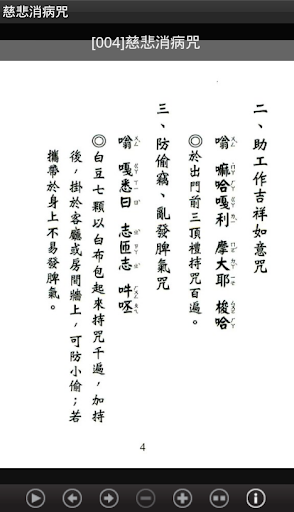 慈悲消病咒
[004]慈悲消病咒
二、助工作吉祥如意咒
嗡 嘛哈嘎利 摩大耶 梭哈
◎於出門前三頂禮持咒百遍。
三、防偷竊、亂發脾氣咒
嗡 嘎悉日 志匝志 吽呸
◎白豆七顆以白布包起來持咒千遍，加持
後，掛於客廳或房間牆上，可防小偷；若
攜帶於身上不易發脾氣。
4